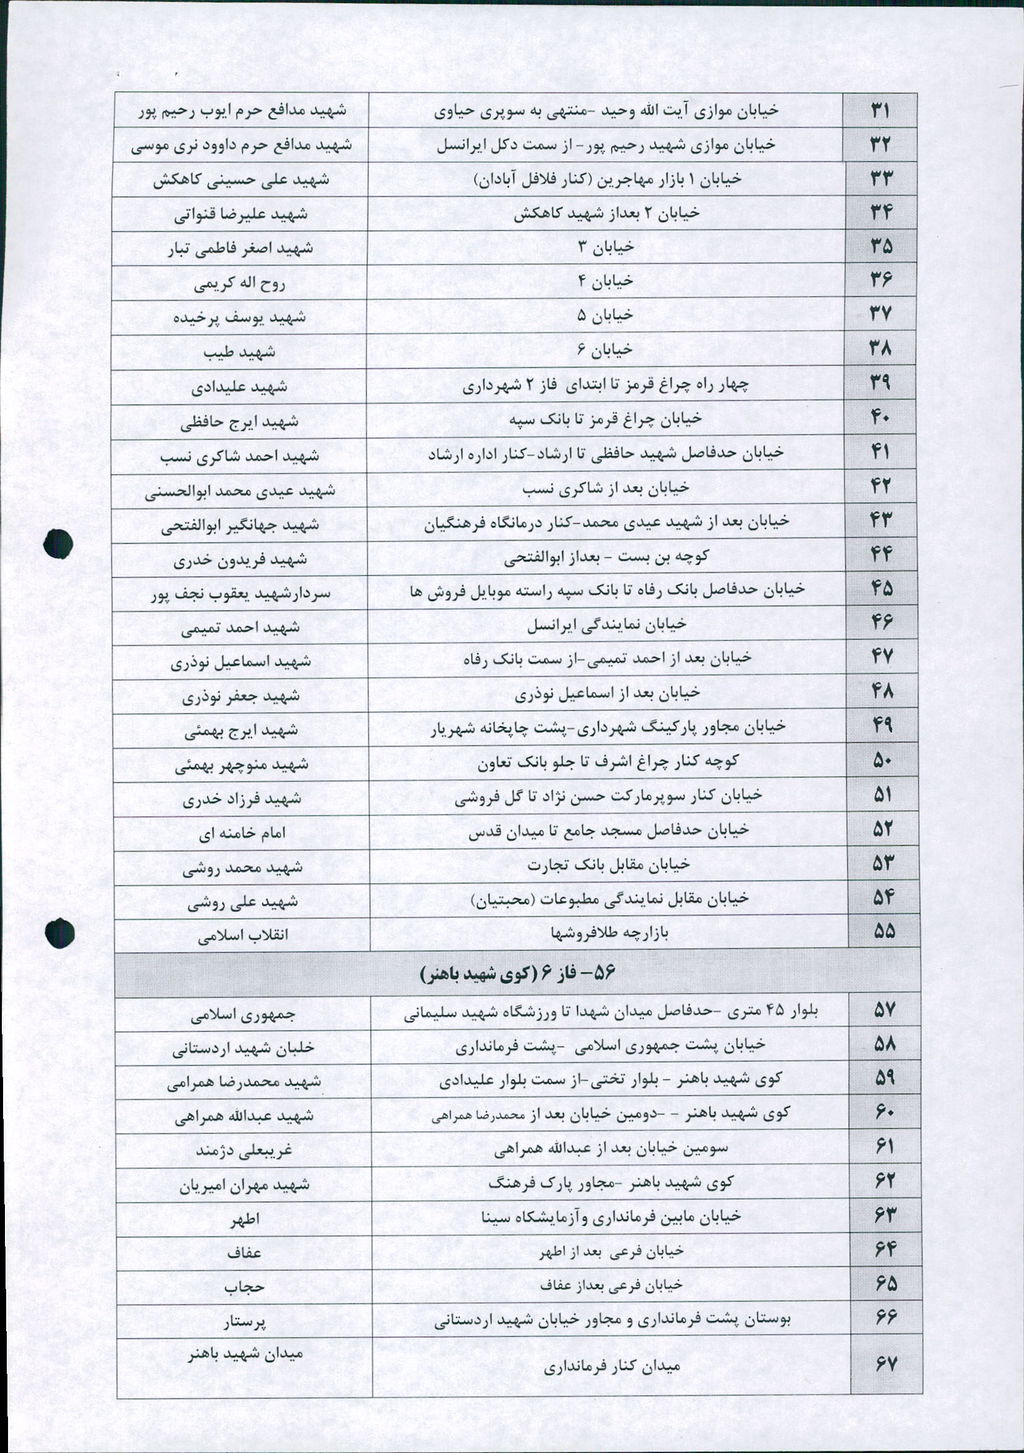 ۳۱ خیابان موازی آیت الله وحید -منتهی به سوپری حیاوی شهید مدافع حرم ایوب رحیم پور
۳۲ خیابان موازی شهید رحیم پور- از سمت دکل ایرانسل شهید مدافع حرم داوود نری موسی
۳۳ خیابان ۱ بازار مهاجرین (کنار فلافل آبادان) شهید علی حسینی کاهکش
۳۴ خیابان ۲ بعداز شهید کاهکش شهید علیرضا قنواتی
۳۵ خیابان ۳ شهید اصغر فاطمی تبار
۳۶ خیابان ۴ روح اله کریمی
۳۷ خیابان ۵ شهید یوسف پرخیده
۳۸ خیابان ۶ شهید طیب
۳۹ چهار راه چراغ قرمز تا ابتدای فاز ۲ شهرداری شهید علیدادی
۴۰ خیابان چراغ قرمز تا بانک سپه شهید ایرج حافظی
۴۱ خیابان حدفاصل شهید حافظی تا ارشاد-کنار اداره ارشاد شهید احمد شاکری نسب
۴۲ خیابان بعد از شاکری نسب شهید عیدی محمد ابوالحسنی
۴۳ خیابان بعد از شهید عیدی محمد-کنار درمانگاه فرهنگیان شهید جهانگیر ابوالفتحی
۴۴ کوچه بن بست - بعداز ابوالفتحی شهید فریدون خدری
۴۵ خیابان حدفاصل بانک رفاه تا بانک سپه راسته موبایل فروش ها سردارشهید یعقوب نجف پور
۴۶ خیابان نمایندگی ایرانسل شهید احمد تمیمی
۴۷ خیابان بعد از احمد تمیمی-از سمت بانک رفاه شهید اسماعیل نوذری
۴۸ خیابان بعد از اسماعیل نوذری شهید جعفر نوذری
۴۹ خیابان مجاور پارکینگ شهرداری-پشت چاپخانه شهریار شهید ایرج بهمئی
۵۰ کوچه کنار چراغ اشرف تا جلو بانک تعاون شهید منوچهر بهمئی
۵۱ خیابان کنار سوپرمارکت حسن نژاد تا گل فروشی شهید فرزاد خدری
۵۲ خیابان حدفاصل مسجد جامع تا میدان قدس امام خامنه ای
۵۳ خیابان مقابل بانک تجارت شهید محمد روشی
۵۴ خیابان مقابل نمایندگی مطبوعات (محبتیان) شهید علی روشی
۵۵ بازارچه طلافروشها انقلاب اسلامی
۵۶- فاز ۶ (کوی شهید باهنر)
۵۷ بلوار ۴۵ متری -حدفاصل میدان شهدا تا ورزشگاه شهید سلیمانی جمهوری اسلامی
۵۸ خیابان پشت جمهوری اسلامی -پشت فرمانداری خلبان شهید اردستانی
۵۹ کوی شهید باهنر - بلوار تختی-از سمت بلوار علیدادی شهید محمدرضا همرامی
۶۰ کوی شهید باهنر - -دومین خیابان بعد از محمدرضا همراهی شهید عبدالله همراهی
۶۱ سومین خیابان بعد از عبدالله همراهی غریبعلی دژمند
۶۲ کوی شهید باهنر -مجاور پارک فرهنگ شهید مهران امیریان
۶۳ خیابان مابین فرمانداری وآزمایشکاه سینا اطهر
۶۴ خیابان فرعی بعد از اطهر عفاف
۶۵ خیابان فرعی بعداز عفاف حجاب
۶۶ بوستان پشت فرمانداری و مجاور خیابان شهید اردستانی پرستار
۶۷ میدان کنار فرمانداری میدان شهید باهنر